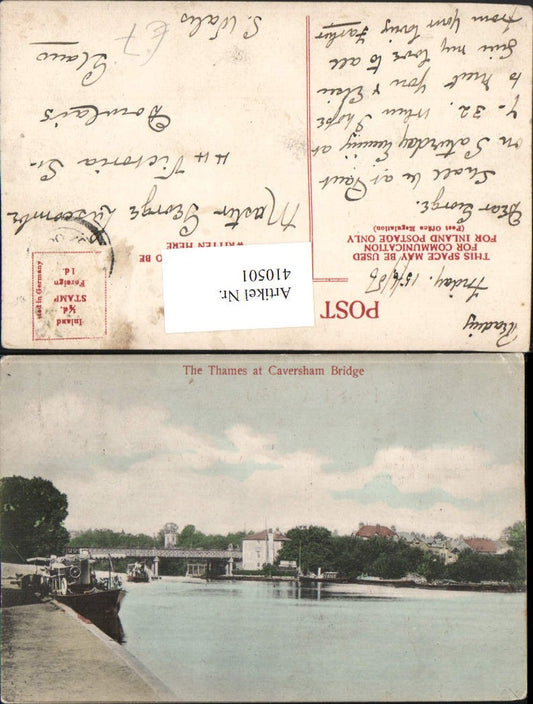 POST
TO BE
WRITTEN HERE
THIS SPACE MAY BE USED
FOR COMMUNICATION
FOR INLAND POSTAGE ONLY
(Post Office Regulation)
Inland
½d.
STAMP
Foreign
1d.
in Germany
Artikel Nr.
410501
Reading
Friday. 15/6/06
Dear George.
Shall be at Pant
on Saturday Evening at
7-32. When I hope
to meet you & Elsie
Give my love to all
from your loving Father
Master George Luscombe
44 Victoria St.
Dowlais
Glam
S. Wales
£7
The Thames at Caversham Bridge